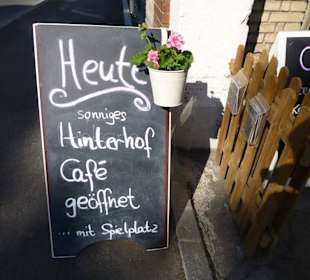 Heute
sonniges
Hinterhof
Café
geöffnet
...mit Spielplatz